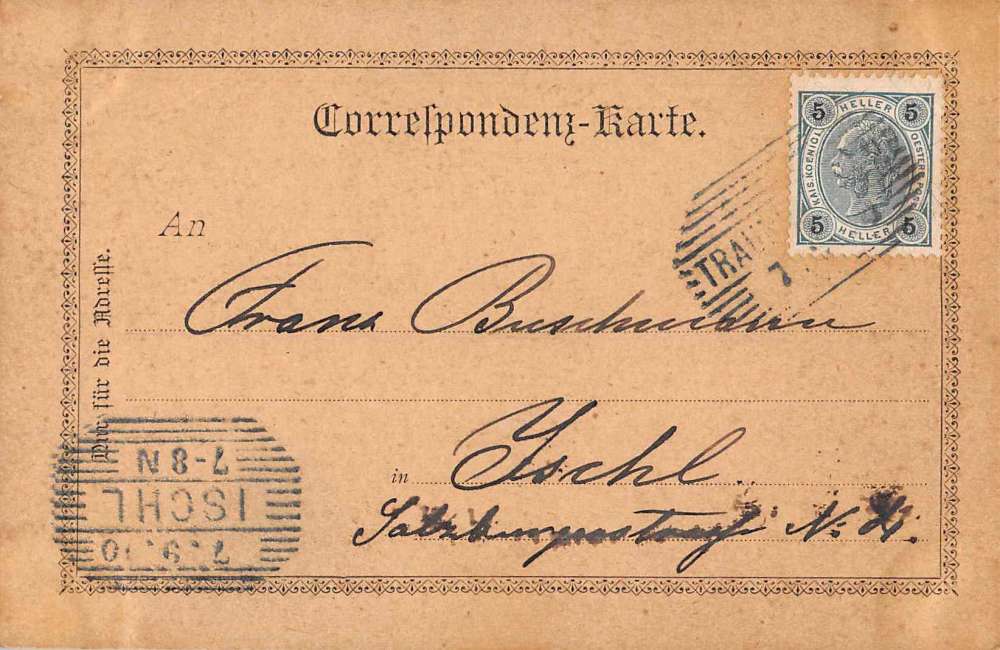 Correspondenz-Karte.
5 HELLER 5
KAIS. KOENIGL.
OESTERR. POST
5 HELLER 5
An
TRAU
7
Franz Buschmann
Nur für die Adresse.
in Ischl.
Salzburgerstrasse No
7-8N
ISCHL
7.9.